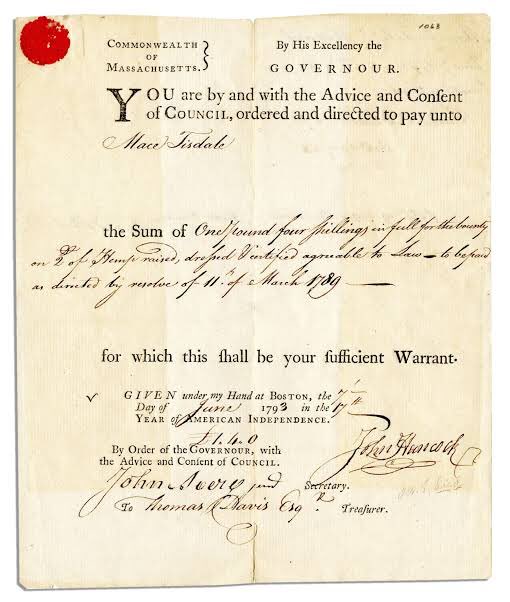 1068
COMMONWEALTH
OF
MASSACHUSETTS.
By His Excellency the
GOVERNOUR.
YOU are by and with the Advice and Conſent
of COUNCIL, ordered and directed to pay unto
Mace Tisdale
the Sum of One pound four ſhillings in full for the bounty
on of Hemp raised, dressed & certified agreable to Law — to be paid
as directed by resolve of 11th of March 1789 —
for which this ſhall be your ſufficient Warrant.
GIVEN under my Hand at BOSTON, the 7th
Day of June 1793 in the 17th
YEAR of AMERICAN INDEPENDENCE.
£1.4.0
By Order of the GOVERNOUR, with
the Advice and Conſent of COUNCIL.
John Hancock
John Avery jun Secretary.
To Thomas Davis Esqr Treaſurer.